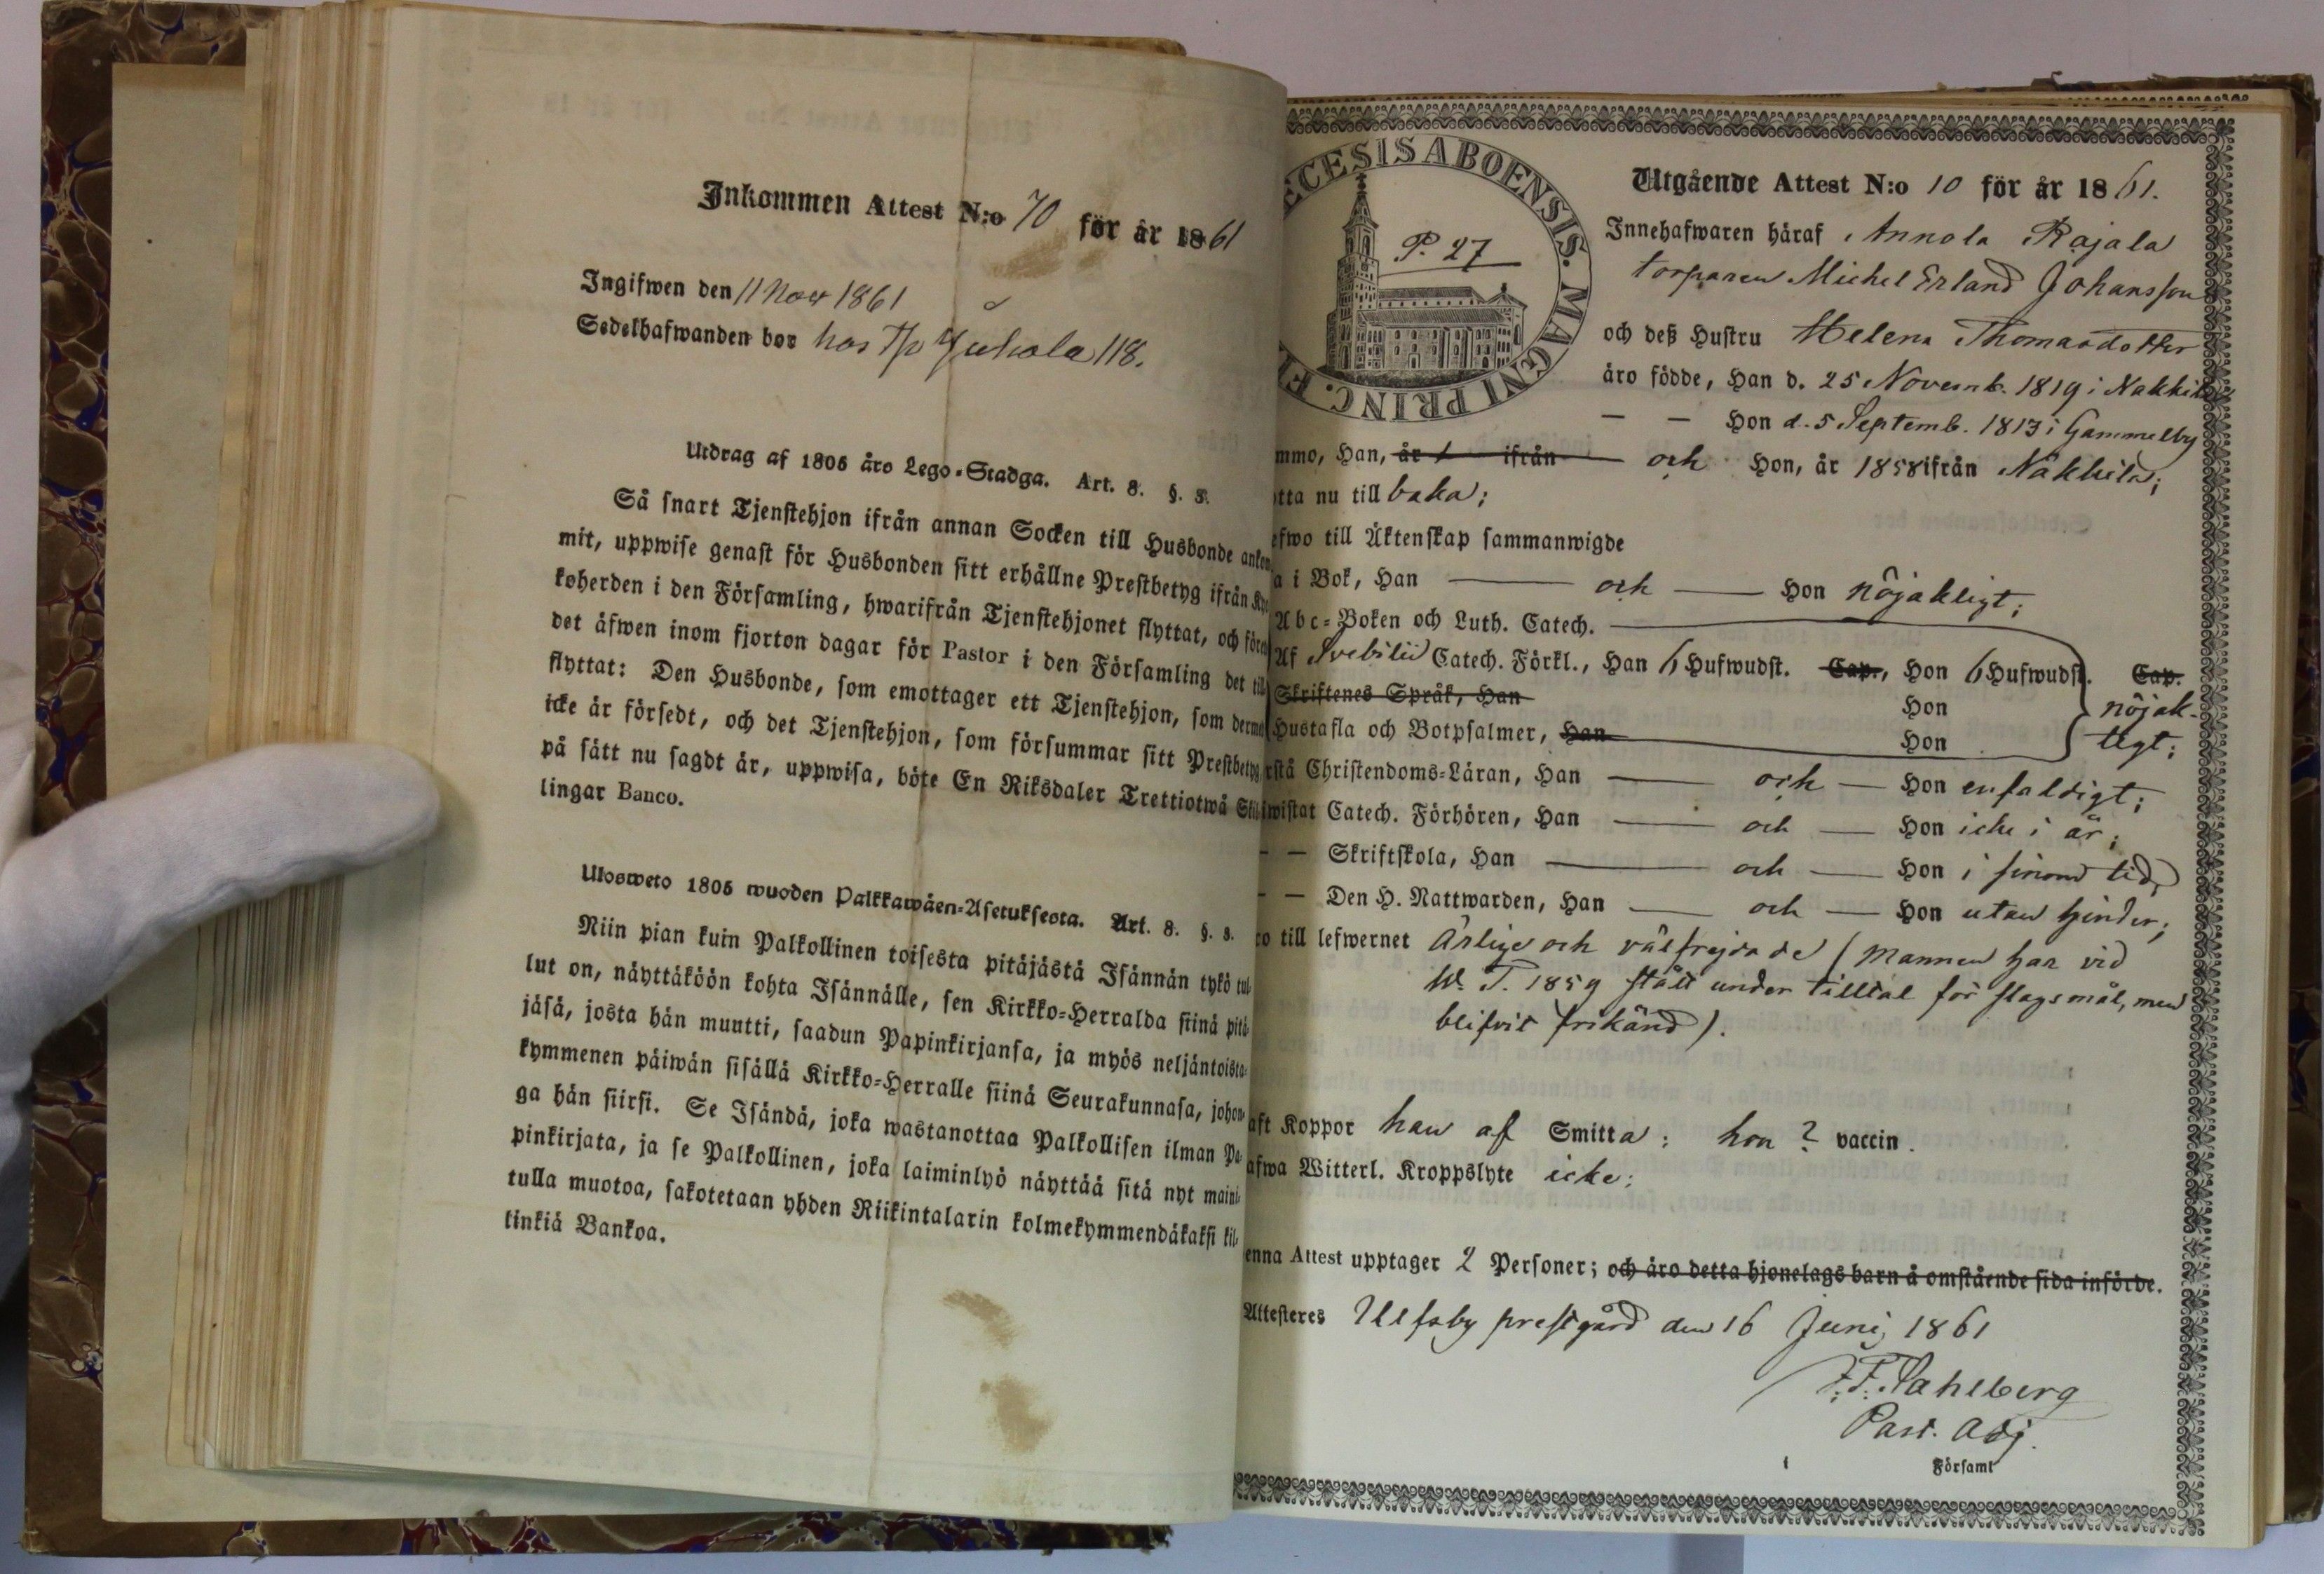 Inkommen Attest N:o 70 för år 1861
Ingifwen den 11 Nov 1861
Sedelhafwanden bor hos T/p Juhola 118.
Utdrag af 1805 års Lego-Stadga. Art. 8. §. 3.
Så snart Tjenstehjon ifrån annan Socken till Husbonde ankom-
mit, uppwise genast för Husbonden sitt erhållne Prestbetyg ifrån Kyr-
koherden i den Församling, hwarifrån Tjenstehjonet flyttat, och förete
det äfwen inom fjorton dagar för Pastor i den Församling det till-
flyttat: Den Husbonde, som emottager ett Tjenstehjon, som dermed
icke är försedt, och det Tjenstehjon, som försummar sitt Prestbetyg,
på sätt nu sagdt är, uppwisa, böte En Riksdaler Trettiotwå Skil-
lingar Banco.
Ulosweto 1805 wuoden Palkkawäen-Asetuksesta. Art. 8. §. 3.
Niin pian kuin Palkollinen toisesta pitäjästä Isännän tykö tul-
lut on, näyttäköön kohta Isännälle, sen Kirkko-Herralda siinä pitä-
jäsä, josta hän muutti, saadun Papinkirjansa, ja myös neljäntoista-
kymmenen päiwän sisällä Kirkko-Herralle siinä Seurakunnasa, johon-
ga hän siirsi. Se Isändä, joka wastanottaa Palkollisen ilman Pa-
pinkirjata, ja se Palkollinen, joka laiminlyö näyttää sitä nyt maini-
tulla muotoa, sakotetaan yhden Riikintalarin kolmekymmendäkaksi kil-
linkiä Bankoa.
CESIS ABOENSIS. MAGNI PRINC. FI
P. 27
Utgående Attest N:o 10 för år 1861.
Innehafwaren häraf Annola Rajala
torparen Michel Erland Johansson
och deß Hustru Helena Thomasdotter
äro födde, Han d. 25 Novemb. 1819 i Nakkila
— — Hon d. 5 Septemb. 1813 i Gammelby
mmo, Han, år 1 ifrån och Hon, år 1858 ifrån Nakkila;
tta nu till baka;
efwo till Äktenskap sammanwigde
a i Bok, Han — och — Hon nöjakligt;
Abc-Boken och Luth. Catech.
Af Svebilii Catech. Förkl., Han 6 Hufwudst. Cap., Hon 6 Hufwudst. Cap.
Skriftenes Språk, Han Hon nöjak-
Hustafla och Botpsalmer, Han Hon ligt;
rstå Christendoms-Läran, Han — och — Hon enfaldigt;
iwistat Catech. Förhören, Han — och — Hon icke i år;
— — Skriftskola, Han — och — Hon i sinom tid,
— — Den H. Nattwarden, Han — och — Hon utan hinder;
ro till lefwernet ärlige och välfrejdade (mannen har vid
W. T. 1859 stått under tilltal för slagsmål, men
blifvit frikänd).
aft Koppor han af Smitta; hon ? vaccin.
afwa Witterl. Kroppslyte icke;
enna Attest upptager 2 Personer; och äro detta hjonelags barn å omstående sida införde.
Attesteres Ulfsby prestgård den 16 Juni 1861
F. F. Sahlberg
Past. Adj.
Församl